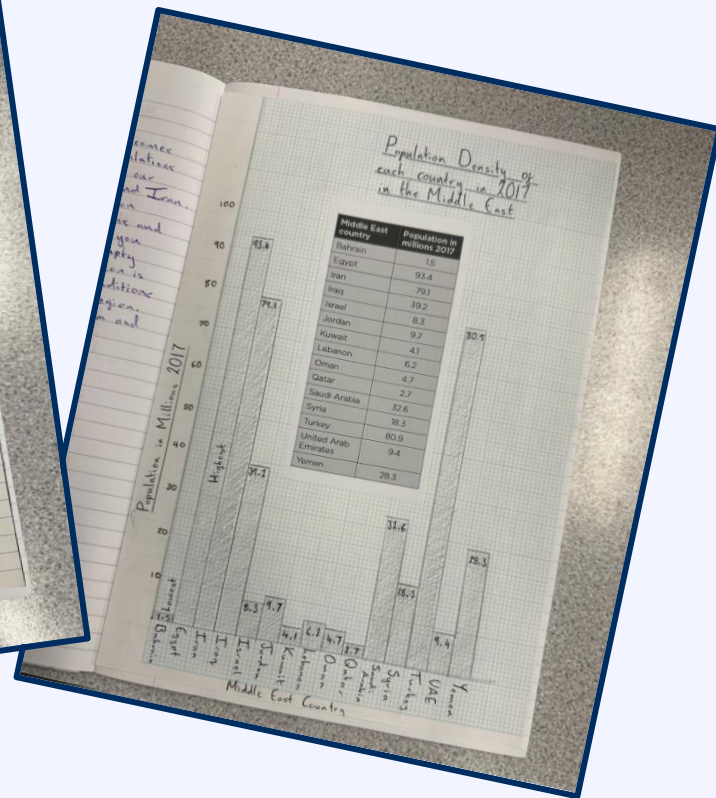 comes
our
nd Iran.
and
you
is
ditions
and
Population Density of
each country in 2017
in the Middle East
Middle East country Population in millions 2017
Bahrain 1.5
Egypt 93.4
Iran 79.1
Iraq 39.2
Israel 8.3
Jordan 9.7
Kuwait 4.1
Lebanon 6.2
Oman 4.7
Qatar 2.7
Saudi Arabia 32.6
Syria 18.3
Turkey 80.9
United Arab Emirates 9.4
Yemen 28.3
Population in Millions 2017
100
90
80
70
60
50
40
30
20
10
Lowest
Highest
79.1
39.2
8.3
9.7
4.1
4.7
32.6
18.3
80.9
9.4
28.3
Bahrain
Egypt
Iran
Iraq
Israel
Jordan
Kuwait
Lebanon
Oman
Qatar
Saudi
Arabia
Syria
Turkey
UAE
Yemen
Middle East Country